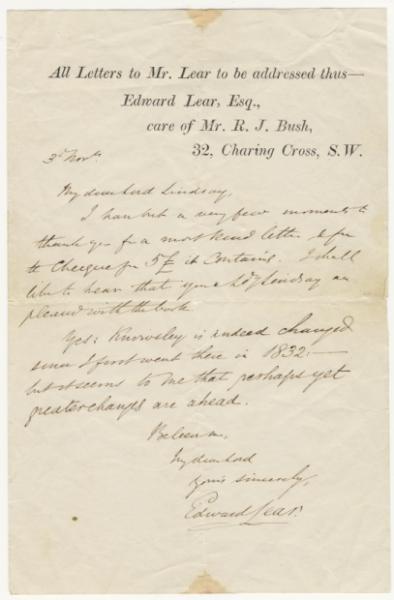 All Letters to Mr. Lear to be addressed thus—
Edward Lear, Esq.,
care of Mr. R. J. Bush,
32, Charing Cross, S.W.
3d Novr.
My dear Lord Lindsay,
I have but a very few moments to
thank you for a most kind letter & for
the Cheque for 5£ it contains. I shall
like to hear that you & Ldy Lindsay are
pleased with the book.
Yes: Knowsley is indeed changed
since I first went there in 1832:—
but it seems to me that perhaps yet
greater changes are ahead.
Believe me,
My dear Lord
Yours sincerely,
Edward Lear.